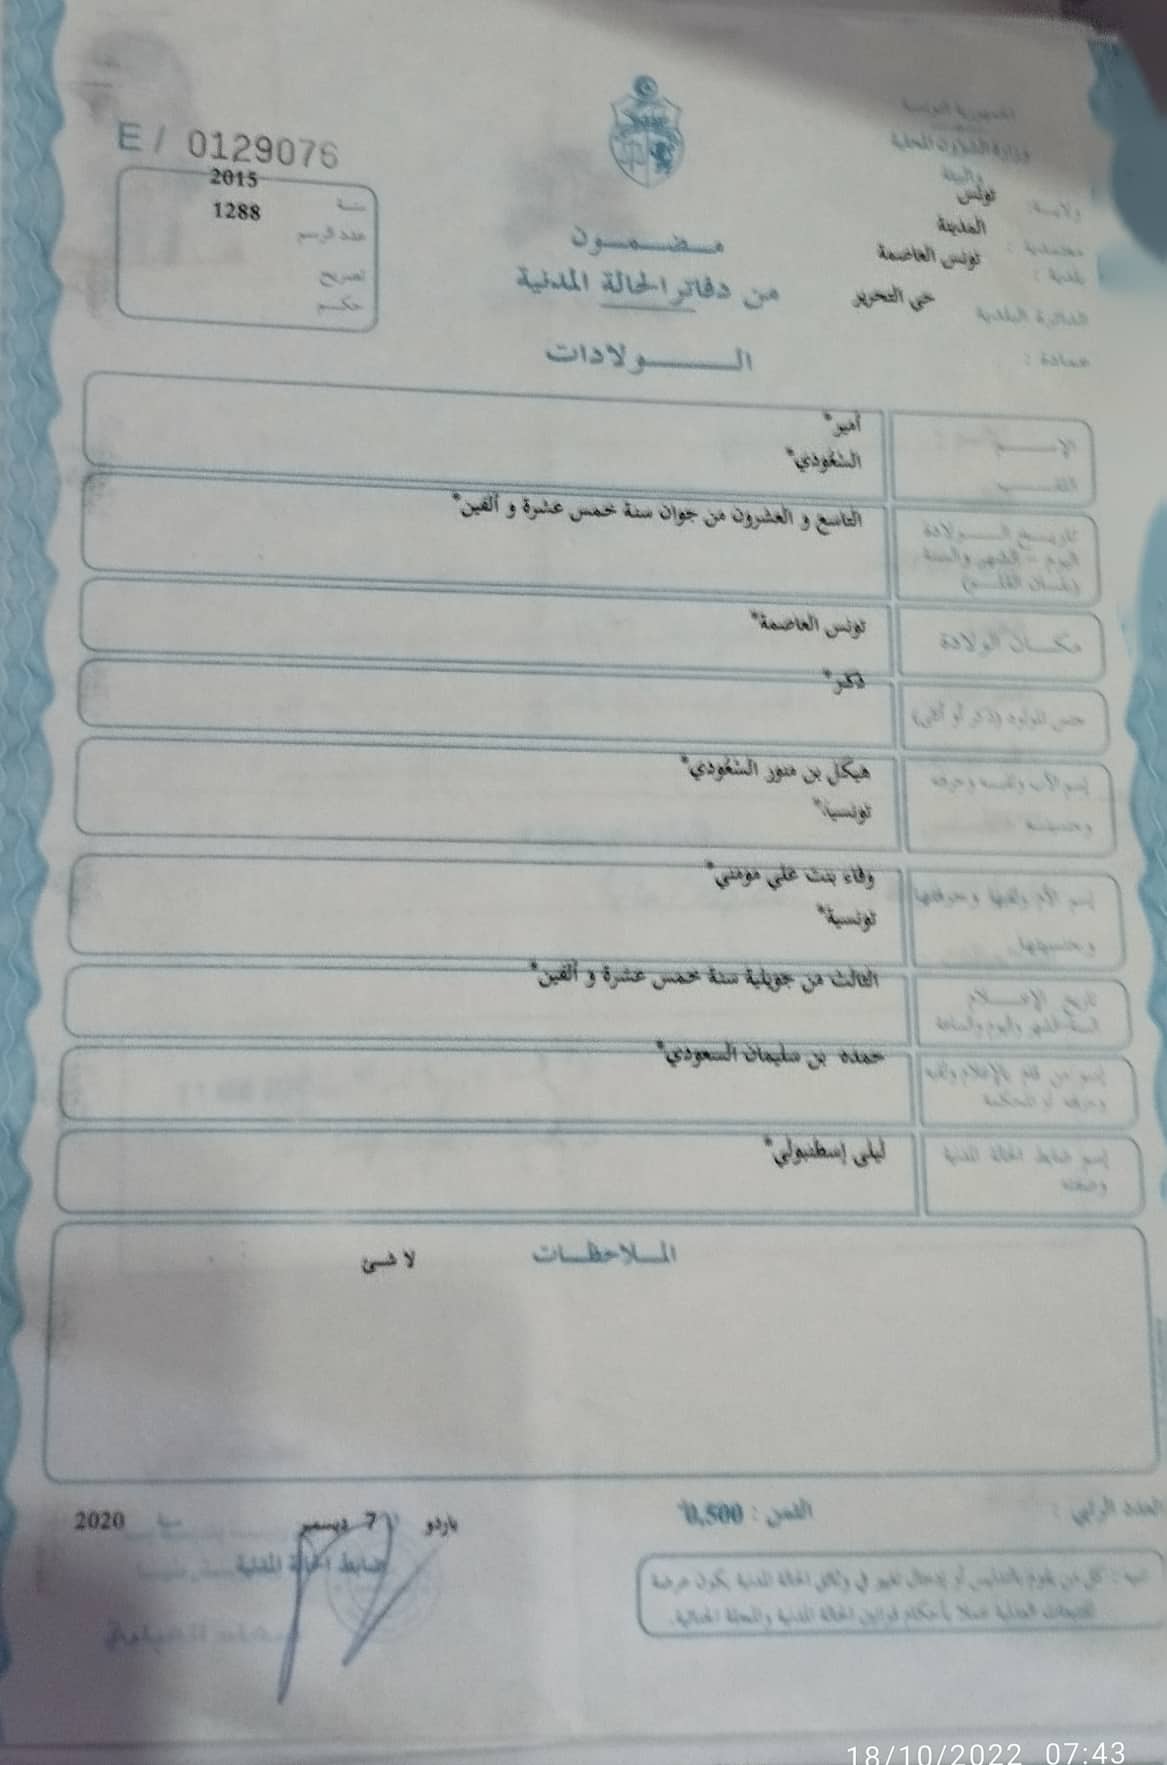 الجمهورية التونسية
وزارة الشؤون المحلية
والبيئة
ولاية : تونس
معتمدية : المدينة
بلدية : تونس العاصمة
الدائرة البلدية حي التحرير
عمادة :
E / 0129076
سنة 2015
عدد الرسم 1288
تصريح
حكم
مضمون
من دفاتر الحالة المدنية
الولادات
الإسم أمير*
اللقب السعودي*
تاريخ الولادة
اليوم - الشهر والسنة
(بلسان القلم)
التاسع و العشرون من جوان سنة خمس عشرة و ألفين*
مكان الولادة تونس العاصمة*
جنس المولود (ذكر أو أنثى) ذكر*
إسم الأب ولقبه وحرفته هيكل بن منور السعودي*
وجنسيته تونسية*
إسم الأم ولقبها وحرفتها وفاء بنت علي مومني*
وجنسيتها تونسية*
تاريخ الإعلام
السنة والشهر واليوم والساعة
الثالث من جويلية سنة خمس عشرة و ألفين*
إسم من قام بالإعلام ولقبه
وحرفته أو المحكمة
حمده بن سليمان السعودي*
إسم ضابط الحالة المدنية
وصفته
ليلى إسطنبولي*
الملاحظات
لا شئ
العدد الرتبي :
الثمن : 0,500
باردو 7 ديسمبر سنة 2020
ضابط الحالة المدنية
تنبيه : كل من يقوم بالتدليس أو إدخال تغيير في وثائق الحالة المدنية يكون عرضة
للتتبعات العدلية عملا بأحكام قوانين الحالة المدنية والمجلة الجنائية.
18/10/2022 07:43